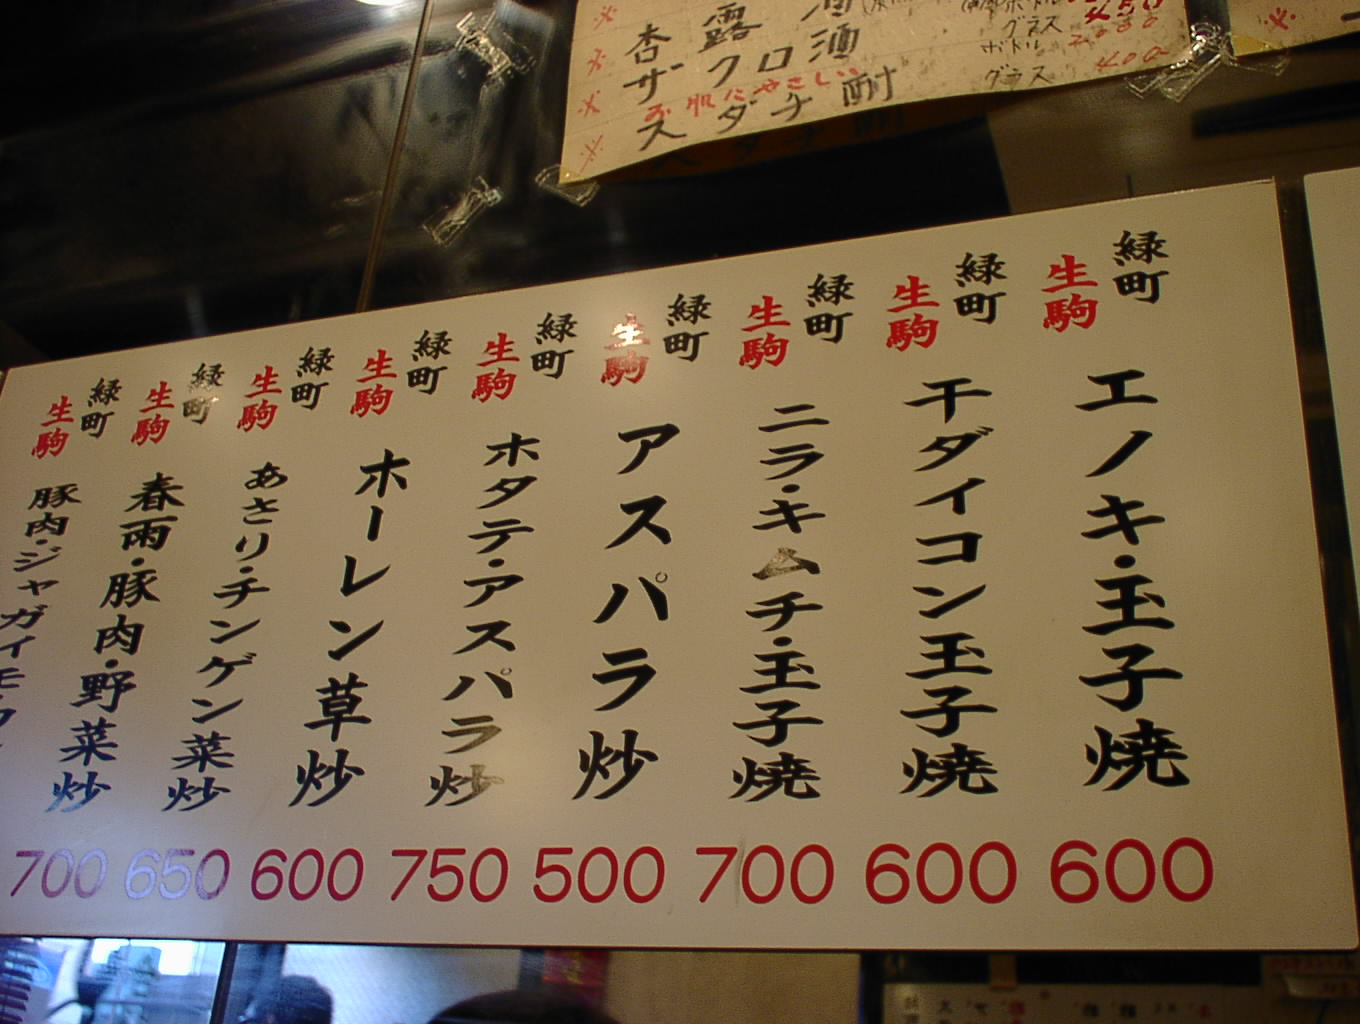 杏露酒
ザクロ酒
お肌にやさしい
スダチ酎
グラス
ボトル
グラス 400
緑町 生駒 エノキ・玉子焼 600
緑町 生駒 干ダイコン玉子焼 600
緑町 生駒 ニラ・キムチ・玉子焼 700
緑町 生駒 アスパラ炒 500
緑町 生駒 ホタテ・アスパラ炒 750
緑町 生駒 ホーレン草炒 600
緑町 生駒 あさり・チンゲン菜炒 600
緑町 生駒 春雨・豚肉・野菜炒 650
緑町 生駒 豚肉・ジャガイモ 700